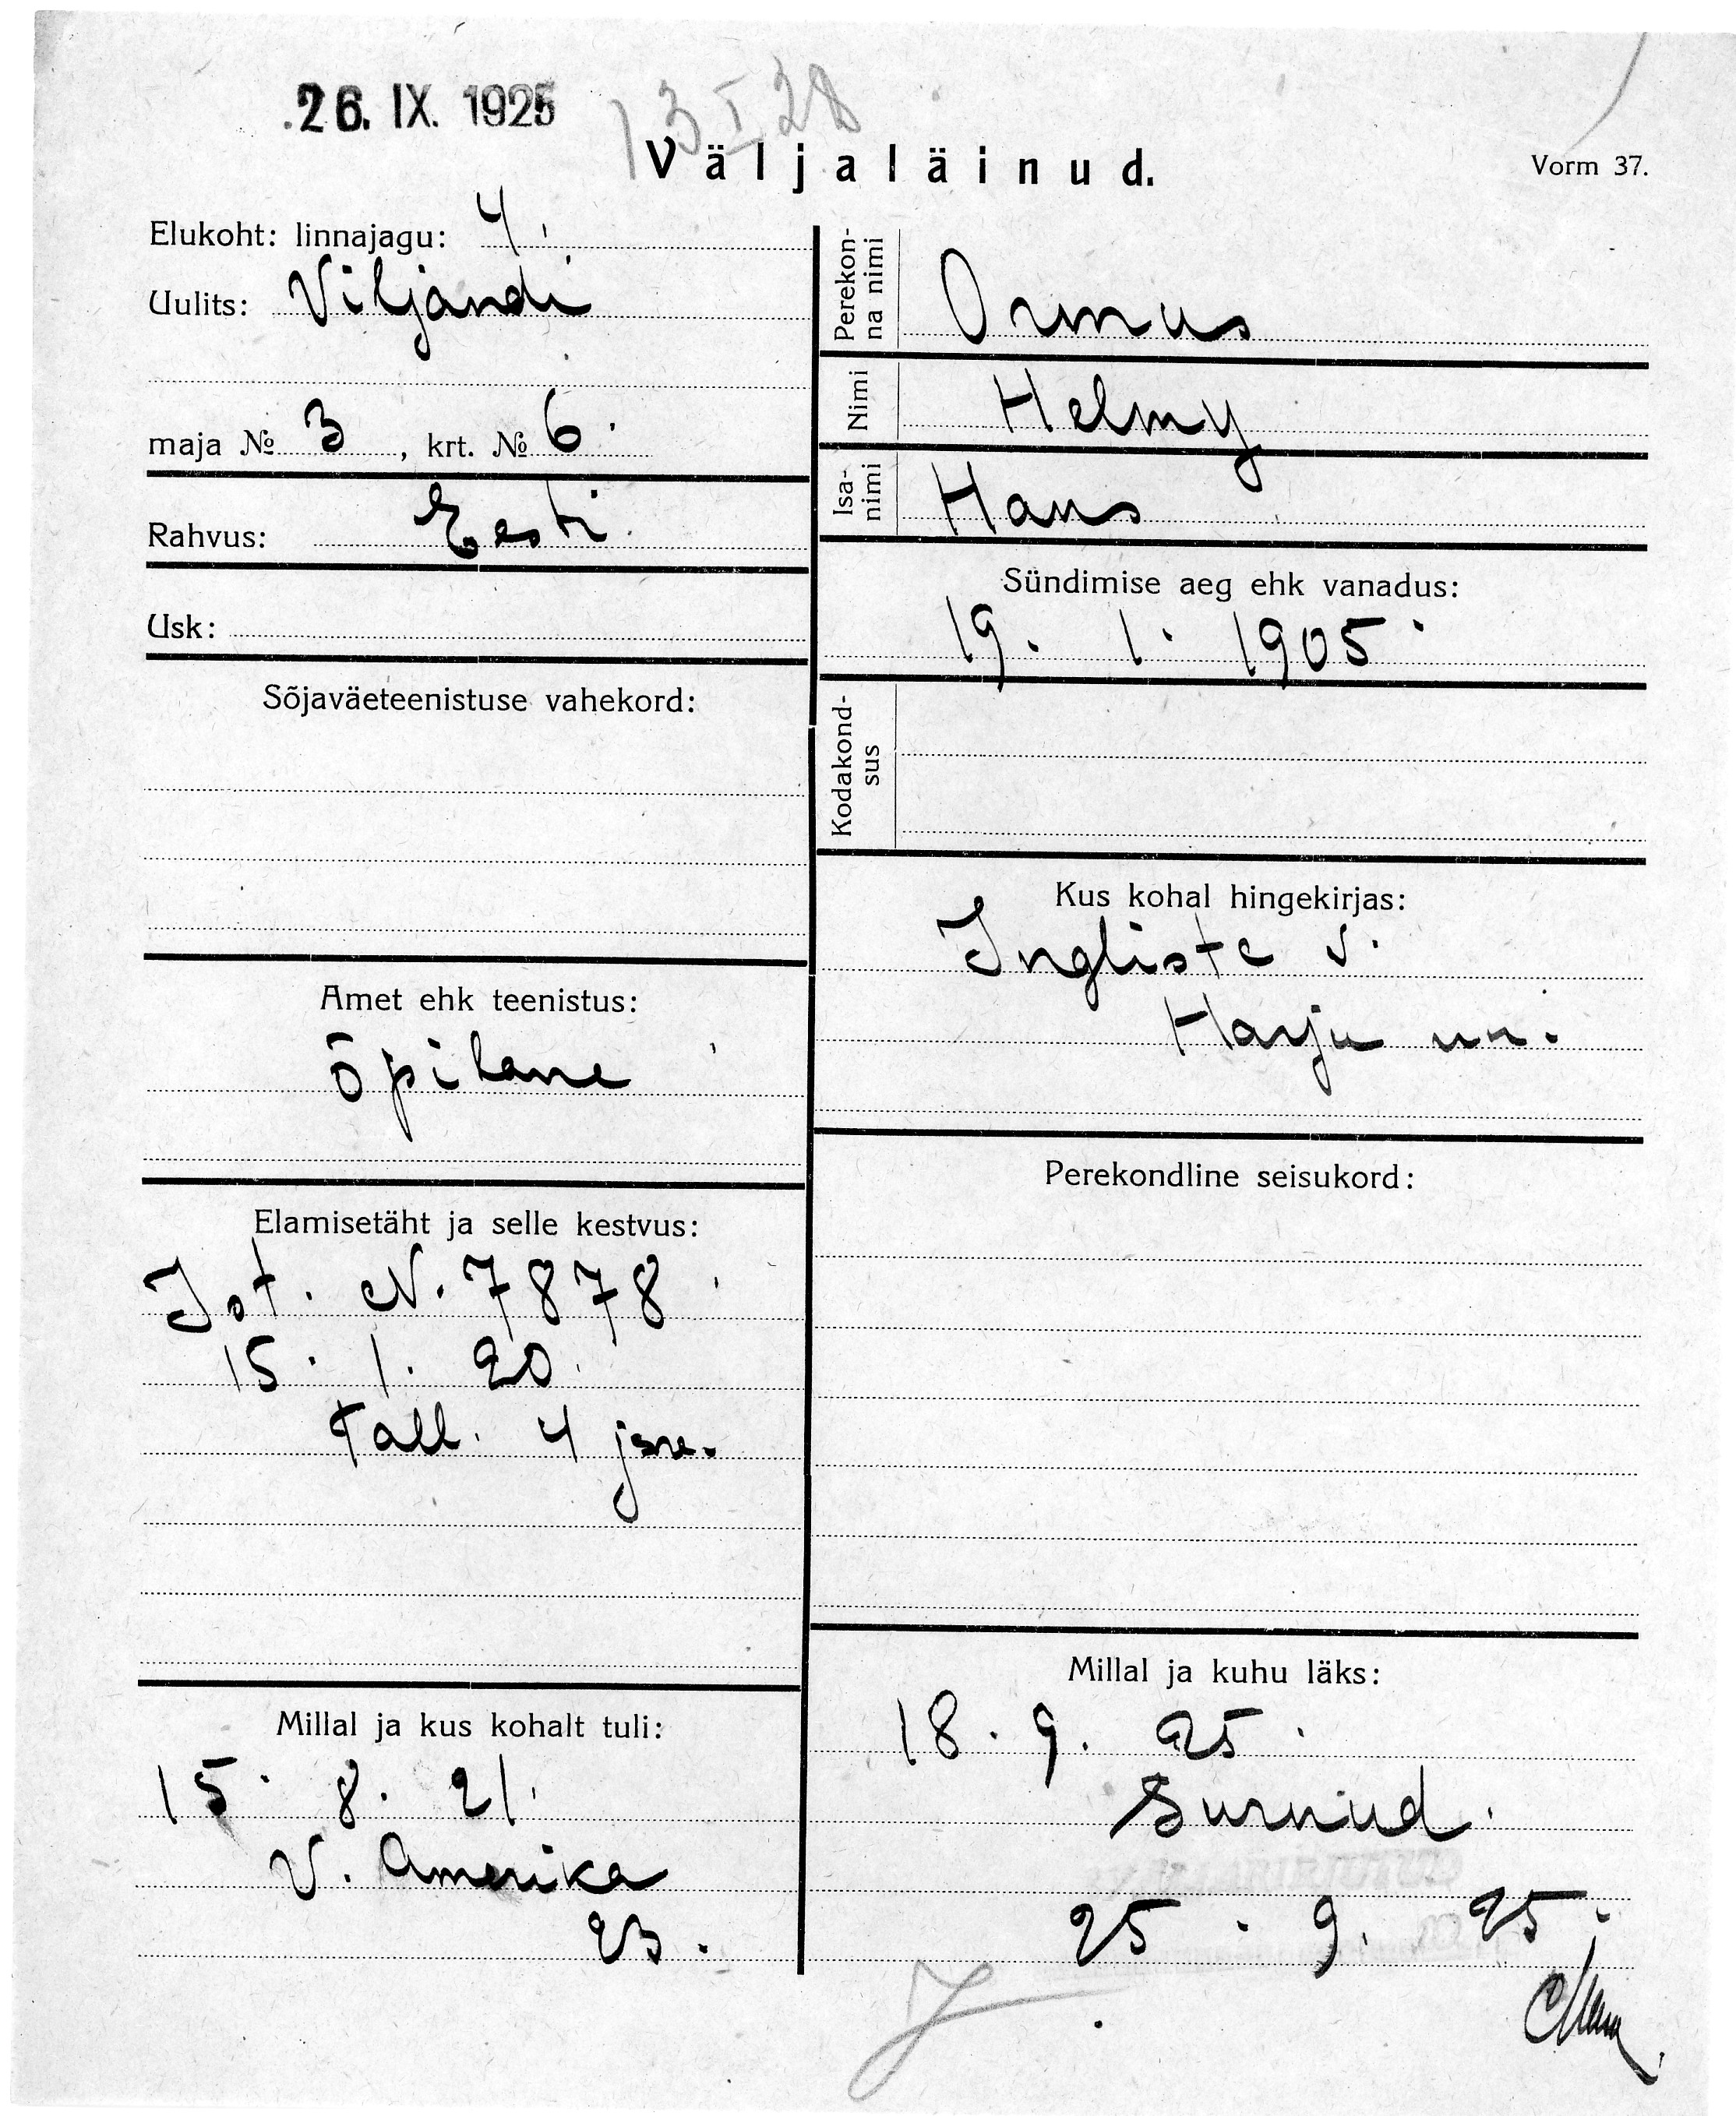 26. IX. 1925
13 I 28
Väljaläinud.
Vorm 37.
Elukoht: linnajagu: 4.
Uulits: Viljandi
maja № 3, krt. № 6.
Rahvus: Eesti.
Usk:
Sõjaväeteenistuse vahekord:
Amet ehk teenistus:
õpilane
Elamisetäht ja selle kestvus:
Ist. N. 7878
15. 1. 20.
Tall. 4 jsne.
Millal ja kus kohalt tuli:
15. 8. 21.
V. Amerika
23.
Perekonna nimi
Ormus
Nimi
Helmy
Isanimi
Hans
Sündimise aeg ehk vanadus:
19. 1. 1905.
Kodakondsus
Kus kohal hingekirjas:
Ingliste v.
Harju m.
Perekondline seisukord:
Millal ja kuhu läks:
18. 9. 25.
Surnud.
25. 9. 25.